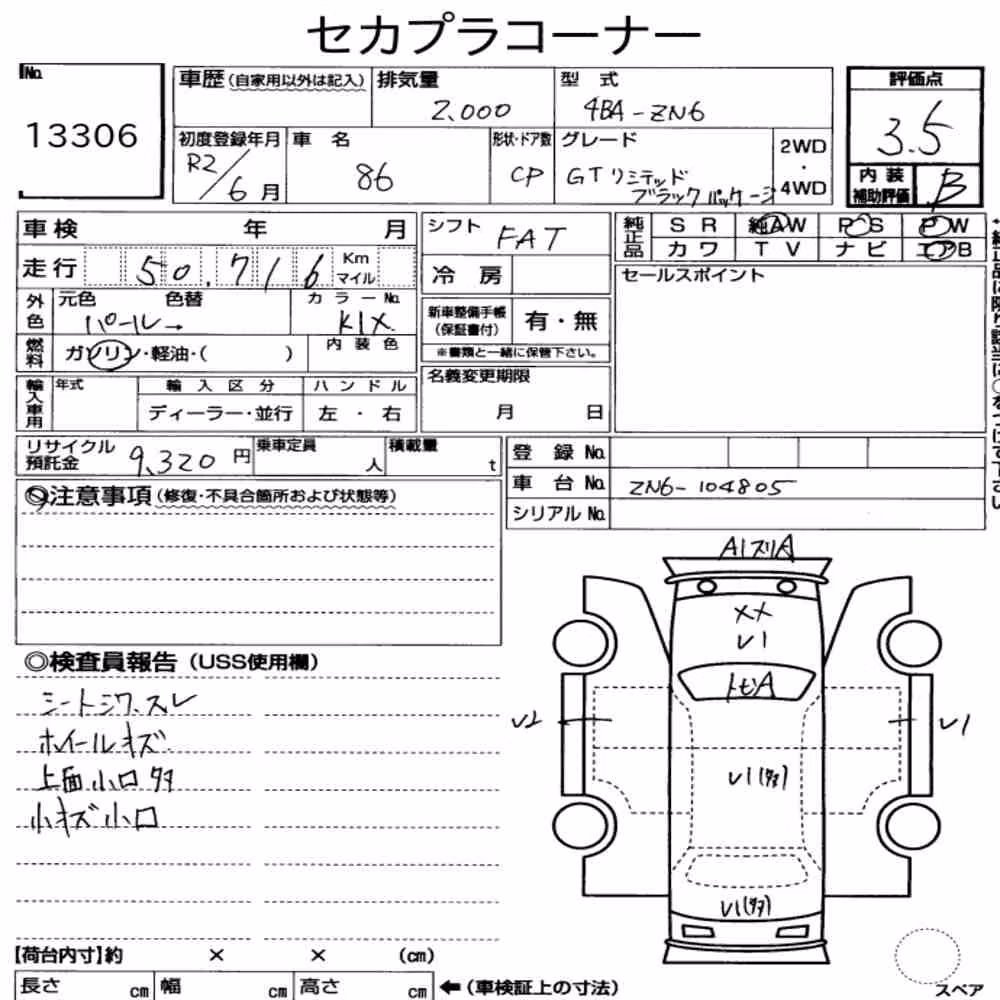 セカプラコーナー
No. 13306
車歴(自家用以外は記入) 排気量 2,000 型 式 4BA-ZN6
初度登録年月 R2/6月 車 名 86 形状・ドア数 CP グレード GTリミテッド ブラックパッケージ 2WD・4WD
評価点 3.5
内装補助評価 B
車検 年 月
走行 50,716 Km マイル
外色 元色 パール→ 色替 カラーNo. K1X
燃料 ガソリン・軽油・( ) 内装色
輸入車用 年式 輸入区分 ハンドル
ディーラー・並行 左・右
シフト FAT
冷 房
新車整備手帳(保証書付) 有・無
※書類と一緒に保管下さい。
名義変更期限
月 日
純正品 SR 純AW PS PW
カワ TV ナビ エアB
セールスポイント
リサイクル預託金 9,320円 乗車定員 人 積載量 t
登 録 No.
車 台 No. ZN6-104805
シリアル No.
◎注意事項(修復・不具合箇所および状態等)
◎検査員報告(USS使用欄)
シートシワ、スレ
ホイールキズ
上面小ロタ
小キズ小ロ
A1 スリA
XX
U1
トビA
U2
U1
U1
U1
【荷台内寸】約 × × (cm)
長さ cm 幅 cm 高さ cm ←(車検証上の寸法)
スペア